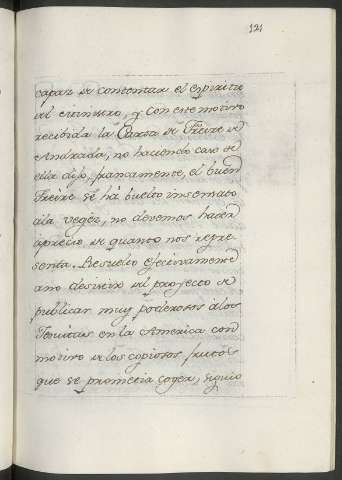 121
capaz de contentar el espiritu
del ministro, y con este motivo
recibida la Carta de Freire de
Andrada, no haciendo caso de
ella dijo, francamente, el buen
Freire se há buelto insensato
ála vegéz, no devemos hacer
aprecio de quanto nos repre
senta. Resuelto efectivamente
ano desistir del proyecto de
publicar muy poderosos álos
Jesuitas en la America con
motivo de los copiosos frutos
que se prometia coger, siguio